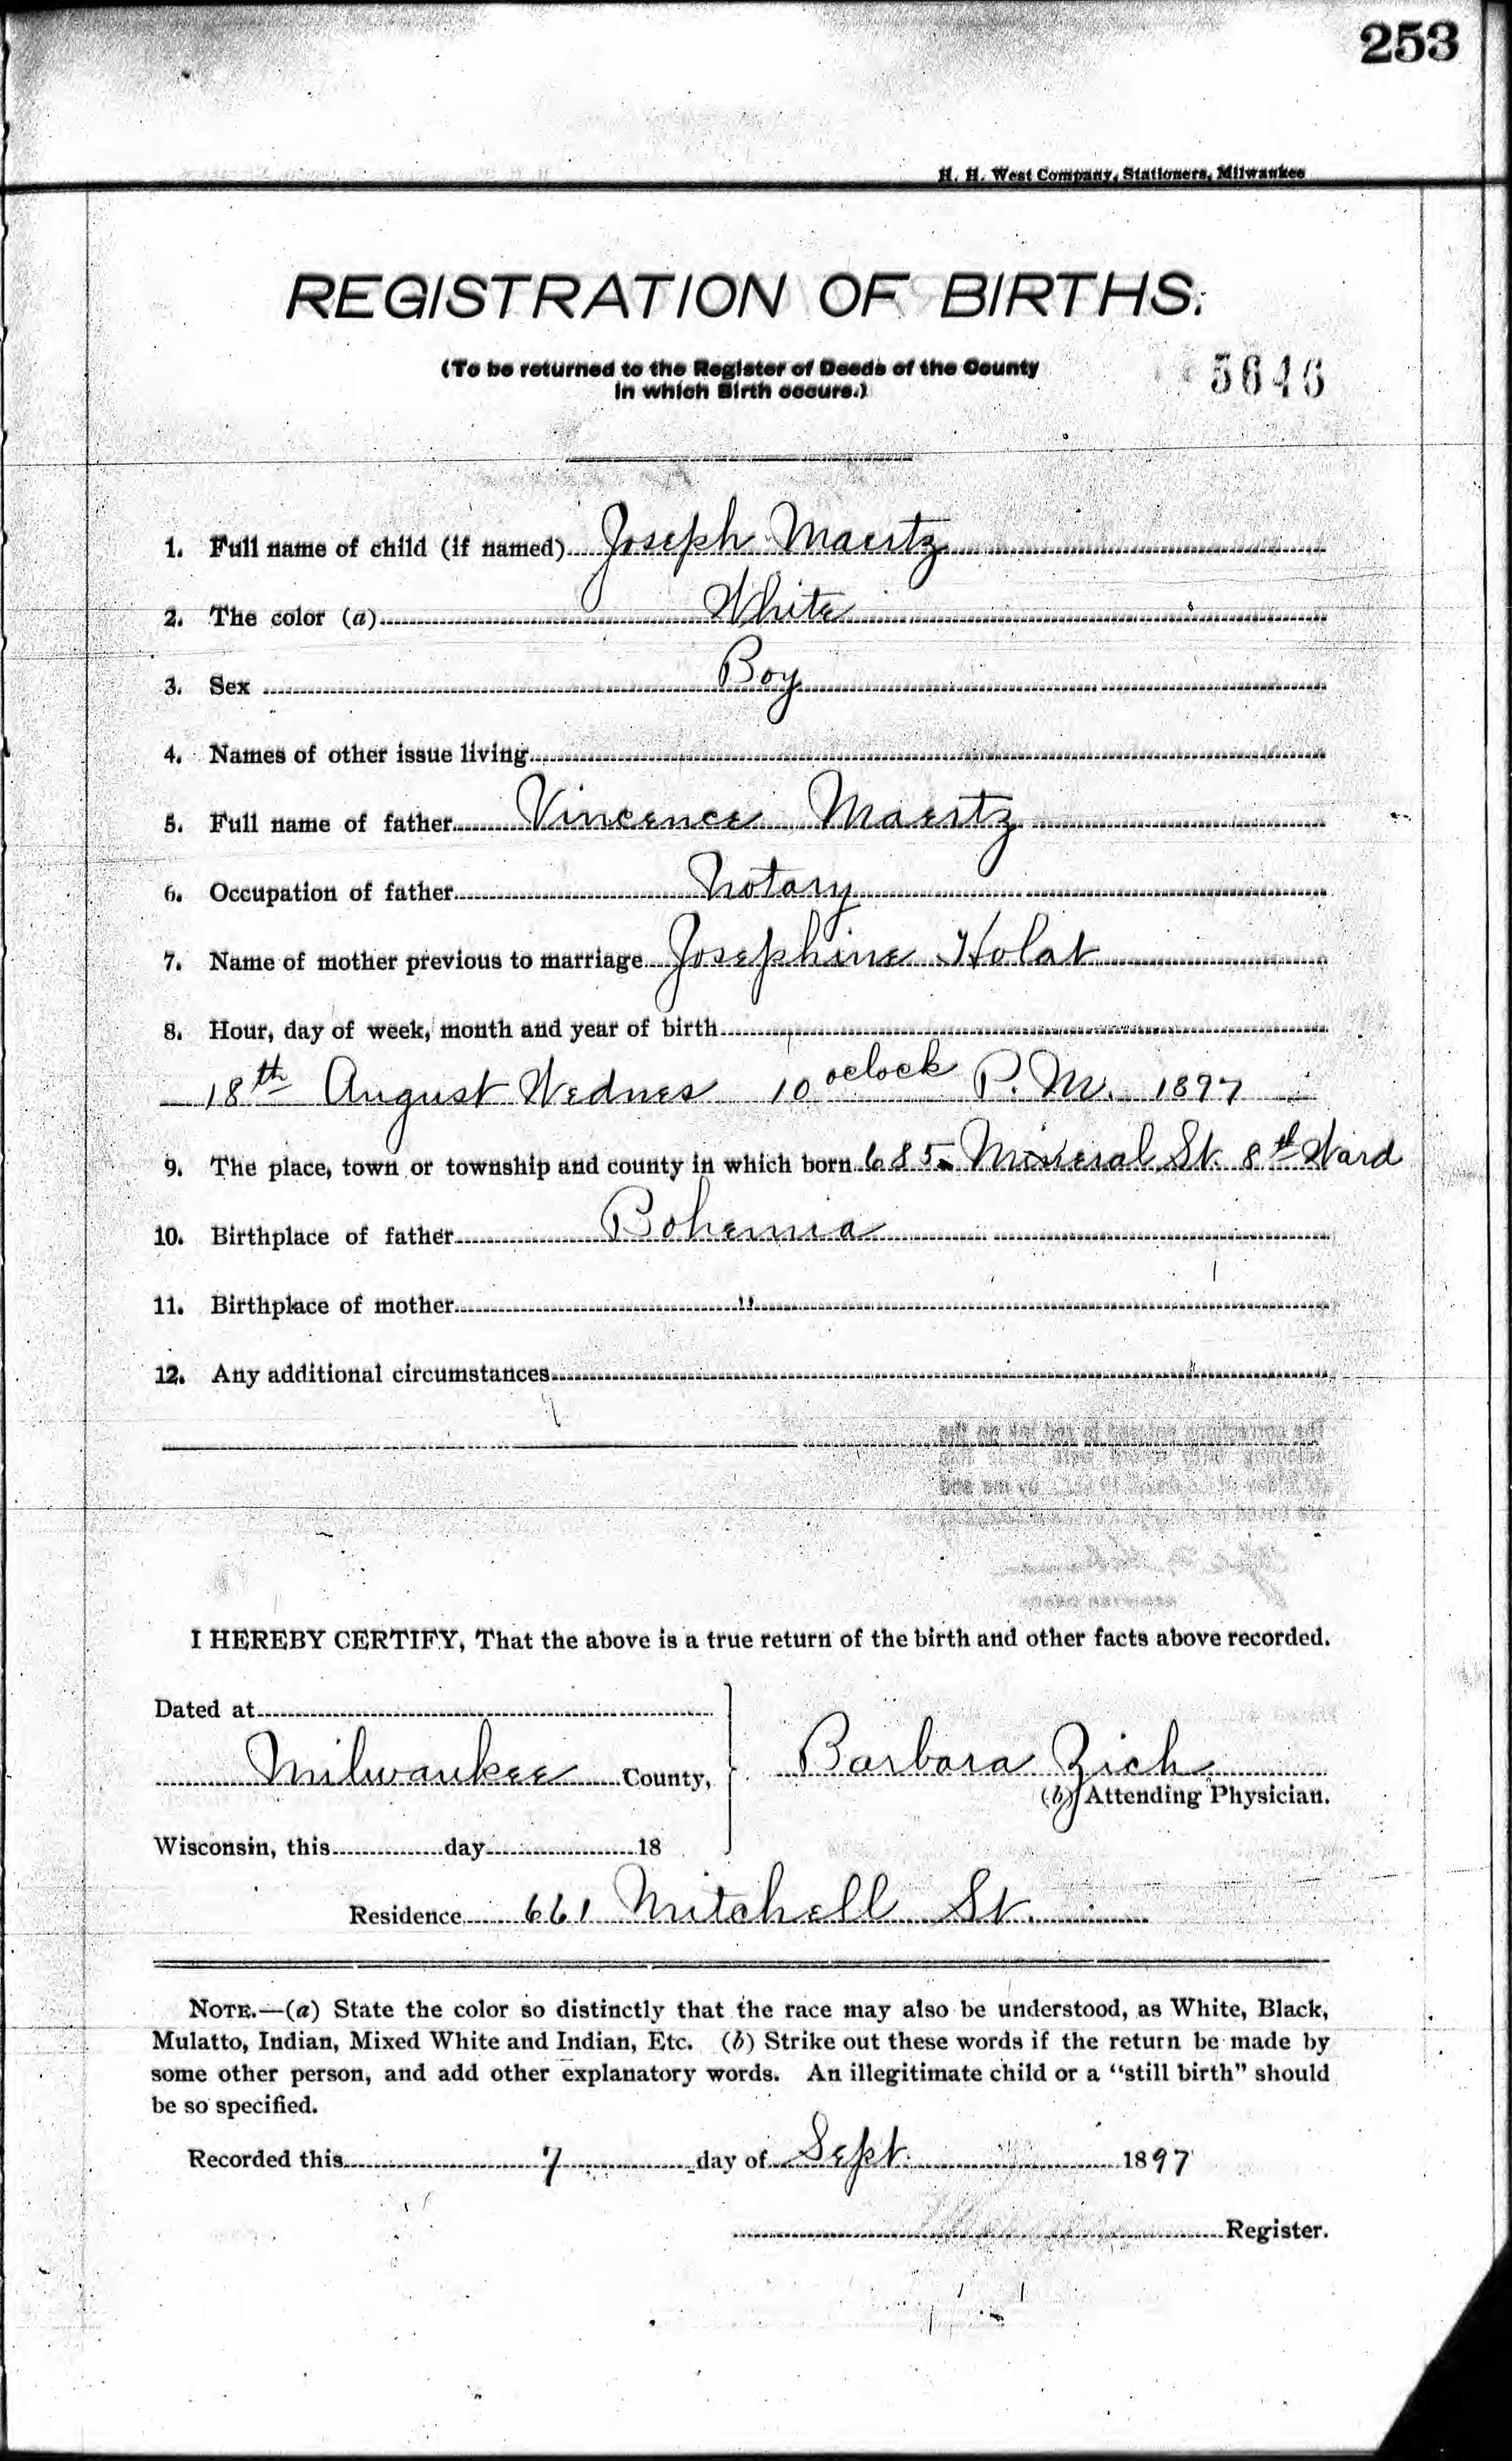 253
H. H. West Company, Stationers, Milwaukee
REGISTRATION OF BIRTHS.
(To be returned to the Register of Deeds of the County
in which Birth occurs.)
5646
1. Full name of child (if named) Joseph Maertz
2. The color (a) White
3. Sex Boy
4. Names of other issue living
5. Full name of father Vincence Maertz
6. Occupation of father Notary
7. Name of mother previous to marriage Josephine Holat
8. Hour, day of week, month and year of birth
18th August Wednes 10 oclock P. M. 1897
9. The place, town or township and county in which born 685 Mineral St. 8th Ward
10. Birthplace of father Bohemia
11. Birthplace of mother "
12. Any additional circumstances
I HEREBY CERTIFY, That the above is a true return of the birth and other facts above recorded.
Dated at
Milwaukee County,
Barbara Zich
(b) Attending Physician.
Wisconsin, this day 18
Residence 661 Mitchell St.
NOTE.—(a) State the color so distinctly that the race may also be understood, as White, Black,
Mulatto, Indian, Mixed White and Indian, Etc. (b) Strike out these words if the return be made by
some other person, and add other explanatory words. An illegitimate child or a "still birth" should
be so specified.
Recorded this 7 day of Sept. 1897
Register.